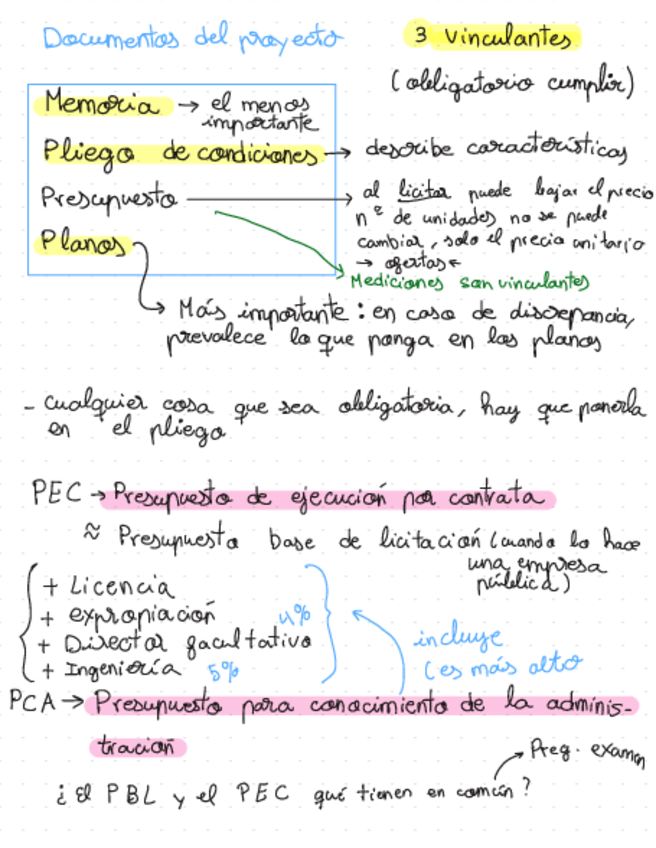 Documentos del proyecto
3 vinculantes
(obligatorio cumplir)
Memoria → el menos
importante
Pliego de condiciones → describe características
Presupuesto → al licitar puede bajar el precio
nº de unidades no se puede
cambiar, solo el precio unitario
→ ofertas ←
Mediciones son vinculantes
Planos
→ Más importante: en caso de discrepancia,
prevalece lo que ponga en los planos
- cualquier cosa que sea obligatoria, hay que ponerla
en el pliego
PEC → Presupuesto de ejecución por contrata
≈ Presupuesto base de licitación (cuando lo hace
una empresa
pública)
+ Licencia
+ expropiación 4%
+ Director facultativo
+ Ingeniería 5%
incluye
(es más alto
PCA → Presupuesto para conocimiento de la adminis-
tración
→ Preg. examen
¿El PBL y el PEC qué tienen en común?